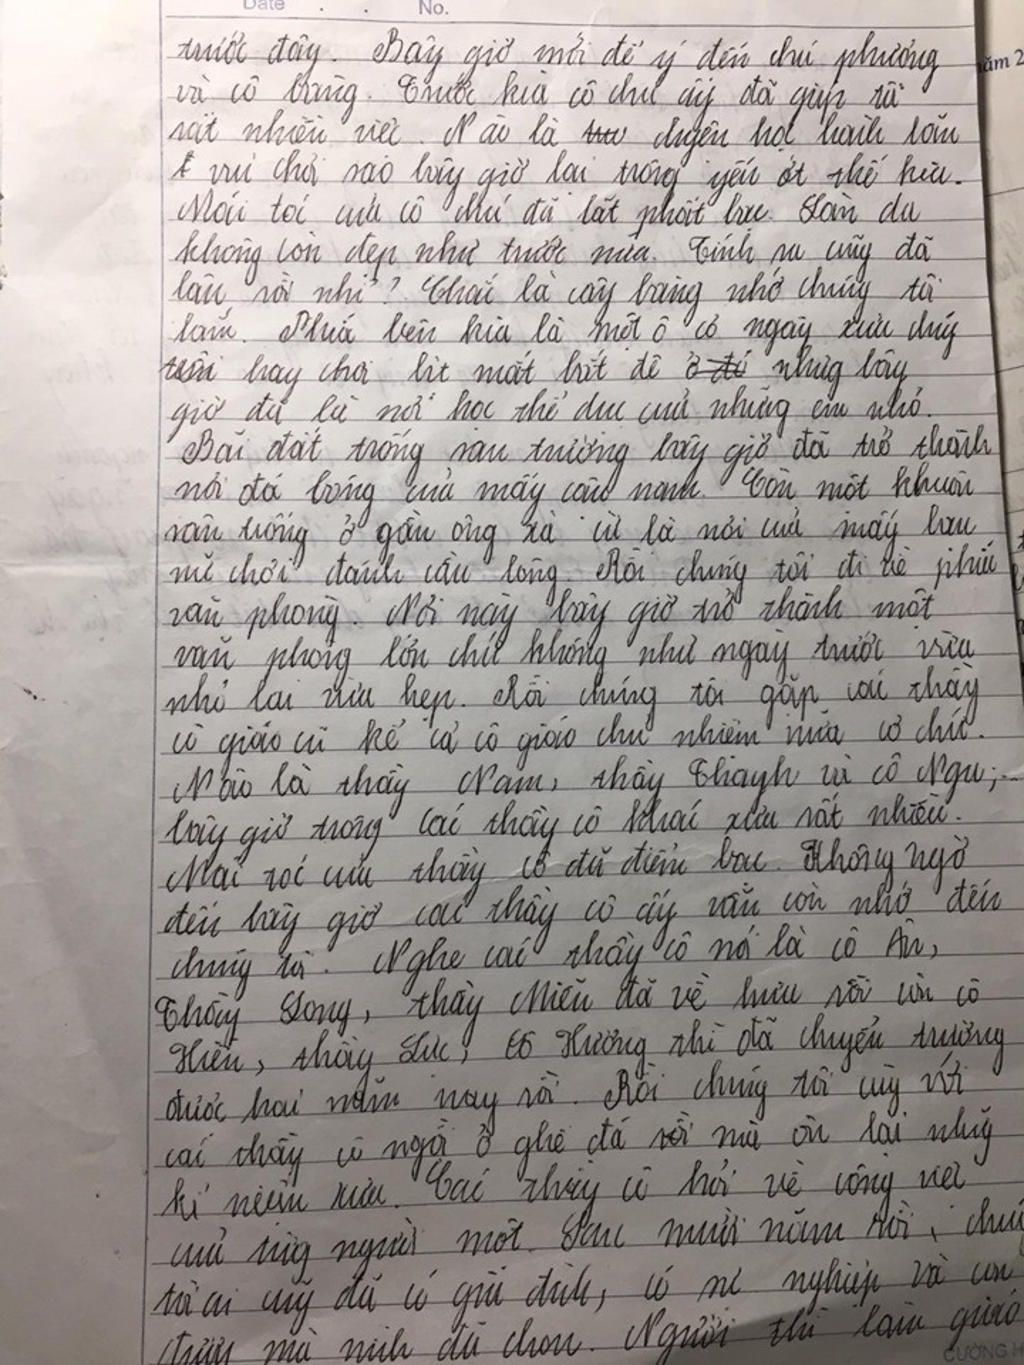 Date . . No.
trước đây. Bây giờ mới để ý đến chú phượng
và cô bàng. Trước kia cô chú ấy đã giúp tôi
rất nhiều việc. Nào là chuyện học hành lẫn
vui chơi sao bây giờ lại trông yếu ớt thế kia.
Mái tóc của cô chú đã lất phất bạc. Làn da
không còn đẹp như trước nữa. Tính ra cũng đã
lâu rồi nhỉ? Chắc là cây bàng nhớ chúng tôi
lắm. Phía bên kia là một ô cỏ ngày xưa chúng
tôi hay chơi bịt mắt bắt dê ở đó nhưng bây
giờ đã là nơi học thể dục của những em nhỏ.
Bãi đất trống sau trường bây giờ đã trở thành
nơi đá bóng của mấy cậu nam. Còn một khuôn
sân trống ở gần ông xà cừ là nơi của mấy bạn
nữ chơi đánh cầu lông. Rồi chúng tôi đi về phía
văn phòng. Nơi này bây giờ trở thành một
văn phòng lớn chứ không như ngày trước vừa
nhỏ lại vừa hẹp. Rồi chúng tôi gặp các thầy
cô giáo cũ kể cả cô giáo chủ nhiệm nữa cơ chứ.
Nào là thầy Nam, thầy Thiạyh và cô Nga;...
bây giờ trông các thầy cô khác xưa rất nhiều.
Mái tóc của thầy cô đã điểm bạc. Không ngờ
đến bây giờ các thầy cô ấy vẫn còn nhớ đến
chúng tôi. Nghe các thầy cô nói là cô Ân,
Thầy Long, thầy Miền đã về hưu rồi còn cô
Hiền, thầy Lực, cô Hương thì đã chuyển trường
được hai năm nay rồi. Rồi chúng tôi cùng với
các thầy cô ngồi ở ghế đá rồi mà ôn lại những
kỉ niệm xưa. Các thầy cô hỏi về công việc
của từng người một. Sau mười năm rồi, chúng
tôi ai cũng đã có gia đình, có sự nghiệp và con
đường mà mình đã chọn. Người thì làm giáo
CƯỜNG H
năm 2